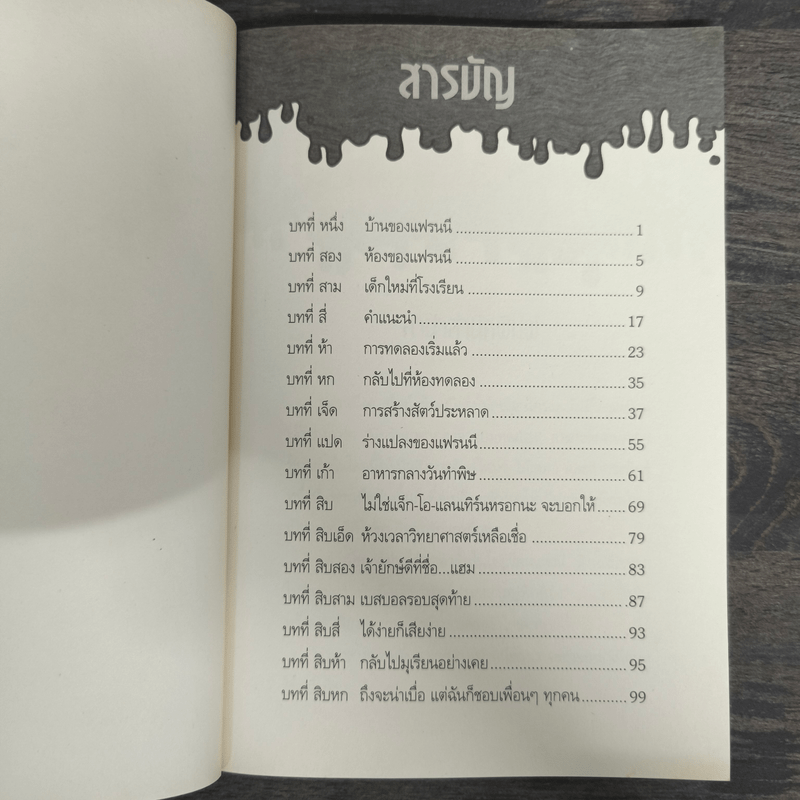 สารบัญ
บทที่ หนึ่ง บ้านของแฟรนนี ........................ 1
บทที่ สอง ห้องของแฟรนนี ........................ 5
บทที่ สาม เด็กใหม่ที่โรงเรียน ........................ 9
บทที่ สี่ คำแนะนำ ........................ 17
บทที่ ห้า การทดลองเริ่มแล้ว ........................ 23
บทที่ หก กลับไปที่ห้องทดลอง ........................ 35
บทที่ เจ็ด การสร้างสัตว์ประหลาด ........................ 37
บทที่ แปด ร่างแปลงของแฟรนนี ........................ 55
บทที่ เก้า อาหารกลางวันทำพิษ ........................ 61
บทที่ สิบ ไม่ใช่แจ็ก-โอ-แลนเทิร์นหรอกนะ จะบอกให้ ....... 69
บทที่ สิบเอ็ด ห้วงเวลาวิทยาศาสตร์เหลือเชื่อ ................ 79
บทที่ สิบสอง เจ้ายักษ์ดีที่ชื่อ...แฮม ........................ 83
บทที่ สิบสาม เบสบอลรอบสุดท้าย ........................ 87
บทที่ สิบสี่ ได้ง่ายก็เสียง่าย ........................ 93
บทที่ สิบห้า กลับไปมุเรียนอย่างเคย ........................ 95
บทที่ สิบหก ถึงจะน่าเบื่อ แต่ฉันก็ชอบเพื่อนๆ ทุกคน ........... 99